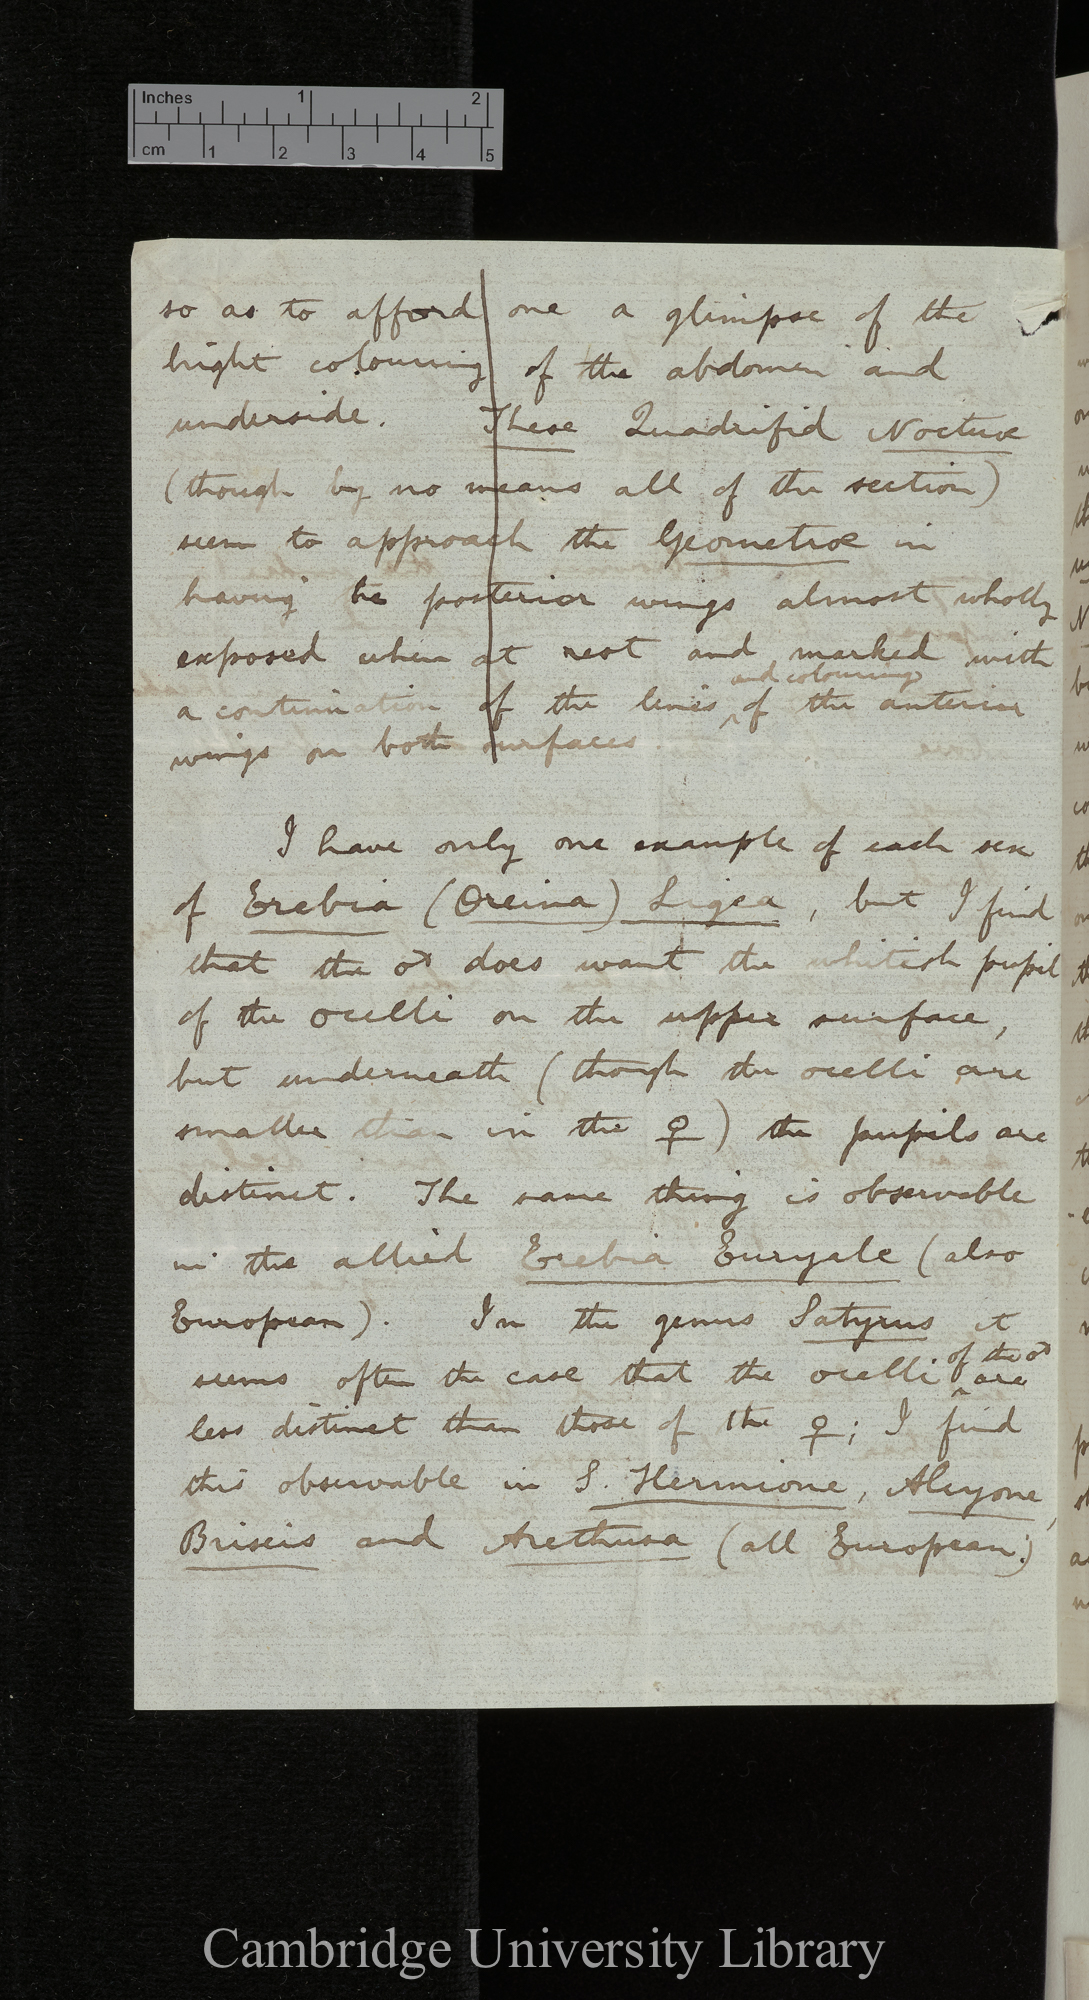 Inches 1 2
cm 1 2 3 4 5
so as to afford one a glimpse of the
bright colouring of the abdomen and
underside. These Quadrifid Noctuæ
(though by no means all of the section)
seem to approach the Geometræ in
having the posterior wings almost wholly
exposed when at rest and marked with
and colouring
a continuation of the lines of the anterior
wings on both surfaces.
I have only one example of each sex
of Erebia (Oreina) Ligea, but I find
that the ♂ does want the whitish pupil
of the ocelli on the upper surface,
but underneath (though the ocelli are
smaller than in the ♀) the pupils are
distinct. The same thing is observable
in the allied Erebia Euryale (also
European). In the genus Satyrus it
of the ♂
seems often the case that the ocelli are
less distinct than those of the ♀; I find
this observable in S. Hermione, Alcyone,
Briseis and Arethusa (all European.)
Cambridge University Library